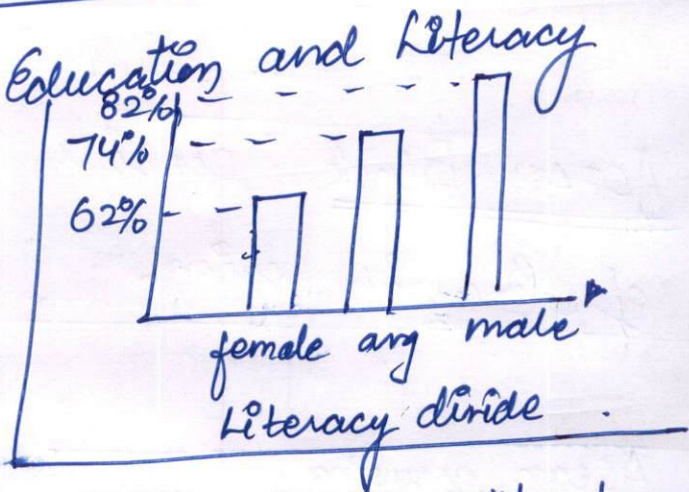 Education and Literacy
82%
74%
62%
female avg male
Literacy divide